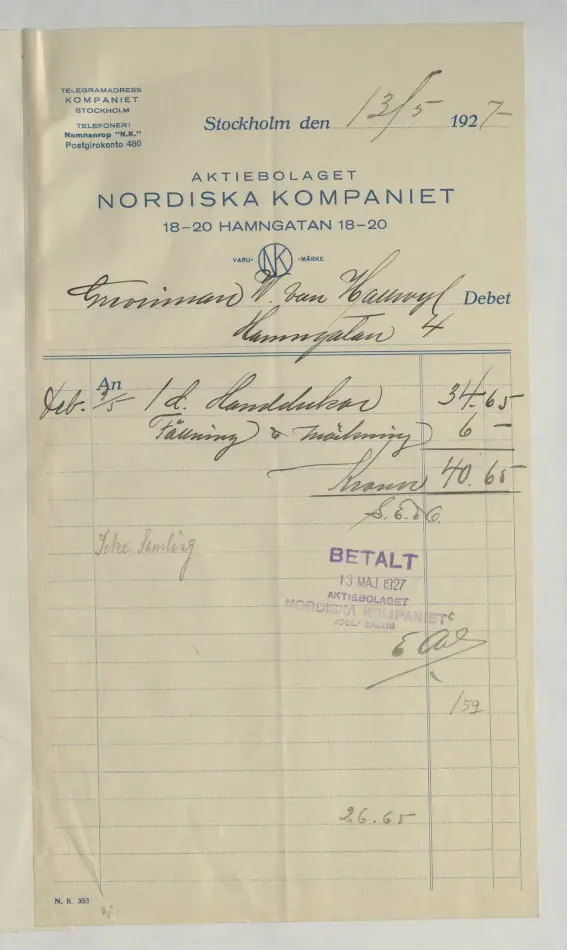 TELEGRAMADRESS
KOMPANIET
STOCKHOLM
TELEFONER:
Namnanrop "N.K."
Postgirokonto 480
Stockholm den 13/5 1927-
AKTIEBOLAGET
NORDISKA KOMPANIET
18-20 HAMNGATAN 18-20
VARU- NK -MÄRKE
W. von Hallwyl Debet
Hamngatan 4
An
Deb. 9/5 1 d. Handdukar 34.65
Fållning & märkning 6 -
Kronor 40.65
S.E.&O.
Icke Samling
BETALT
13 MAJ. 1927
AKTIEBOLAGET
NORDISKA KOMPANIET
JOSEF SACHS
159
26.65
N. K. 353